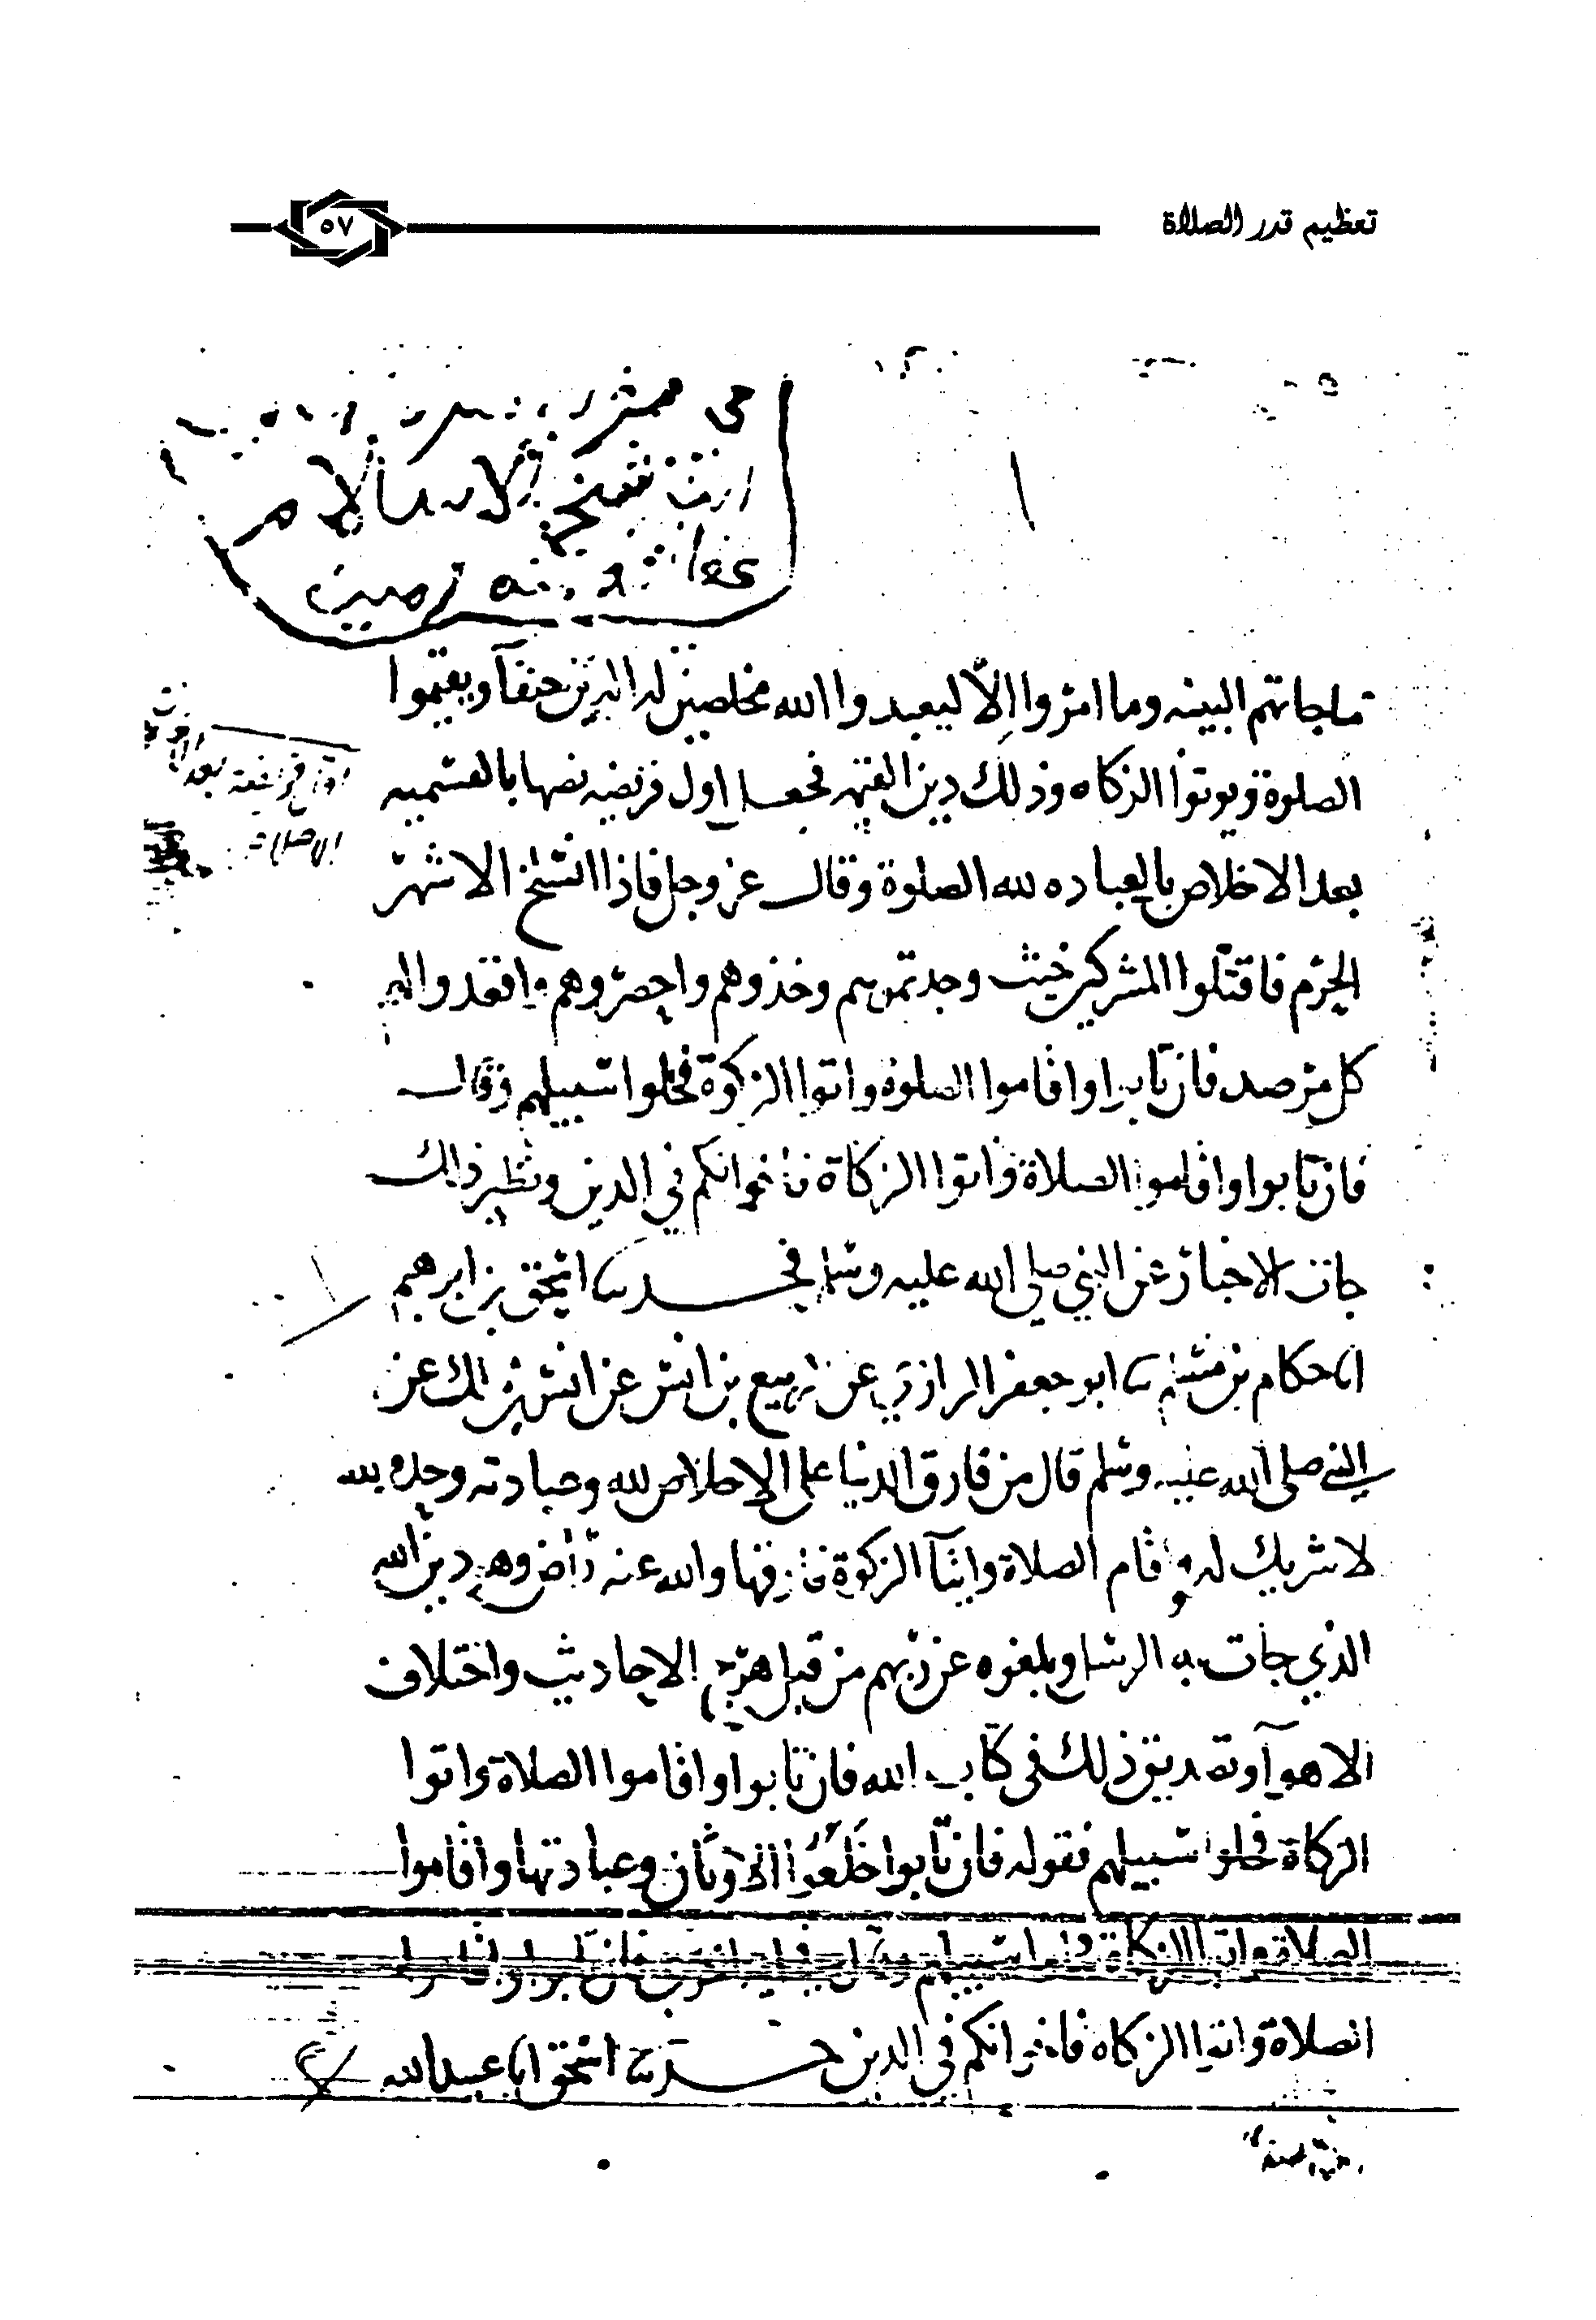 تعظيم قدر الصلاة
٥٧
شيخ الاسلام
ما جاتهم البينه وما امروا إلّا ليعبدوا الله مخلصين له الدين حنفآ ويقيموا
الصلوة ويوتوا الزكاه وذلك دين القيمه فجعل اول فريضه نصها بالتسميه
بعد الاخلاص بالعباده لله الصلوة وقال عز وجل فاذا انسلخ الاشهر
الحرم فاقتلوا المشركين حيث وجدتموهم وخذوهم واحصروهم واقعدوا لهم
كل مرصد فان تابوا واقاموا الصلوة واتوا الزكوة فخلوا سبيلهم وقال
فان تابوا واقاموا الصلاة واتوا الزكاة فاخوانكم في الدين ونظير ذلك
جات الاخبار عن النبي صلى الله عليه وسلم فحدثنا اسحق بن ابرهيم
انا حكام بن سلم نا ابو جعفر الرازي عن الربيع بن انس عن انس بن ملك عن
النبي صلى الله عليه وسلم قال من فارق الدنيا على الاخلاص لله وعبادته وحده لله
لا شريك له واقام الصلاة وايتآ الزكوة فارقها والله عنه راض وهو دين الله
الذي جات به الرسل وبلغوه عن ربهم من قبل هرج الاحاديث واختلاف
الاهوآ وتصديق ذلك في كتاب الله فان تابوا واقاموا الصلاة واتوا
الزكاة فخلوا سبيلهم فقوله فان تابوا خلعوا الاوثان وعبادتها واقاموا
الصلاة واتوا الزكاة فخلوا سبيلهم وقال في اية اخرى فان تابوا واقاموا
الصلاة واتوا الزكاه فاخوانكم في الدين حدثنا اسحق انا عبيد الله